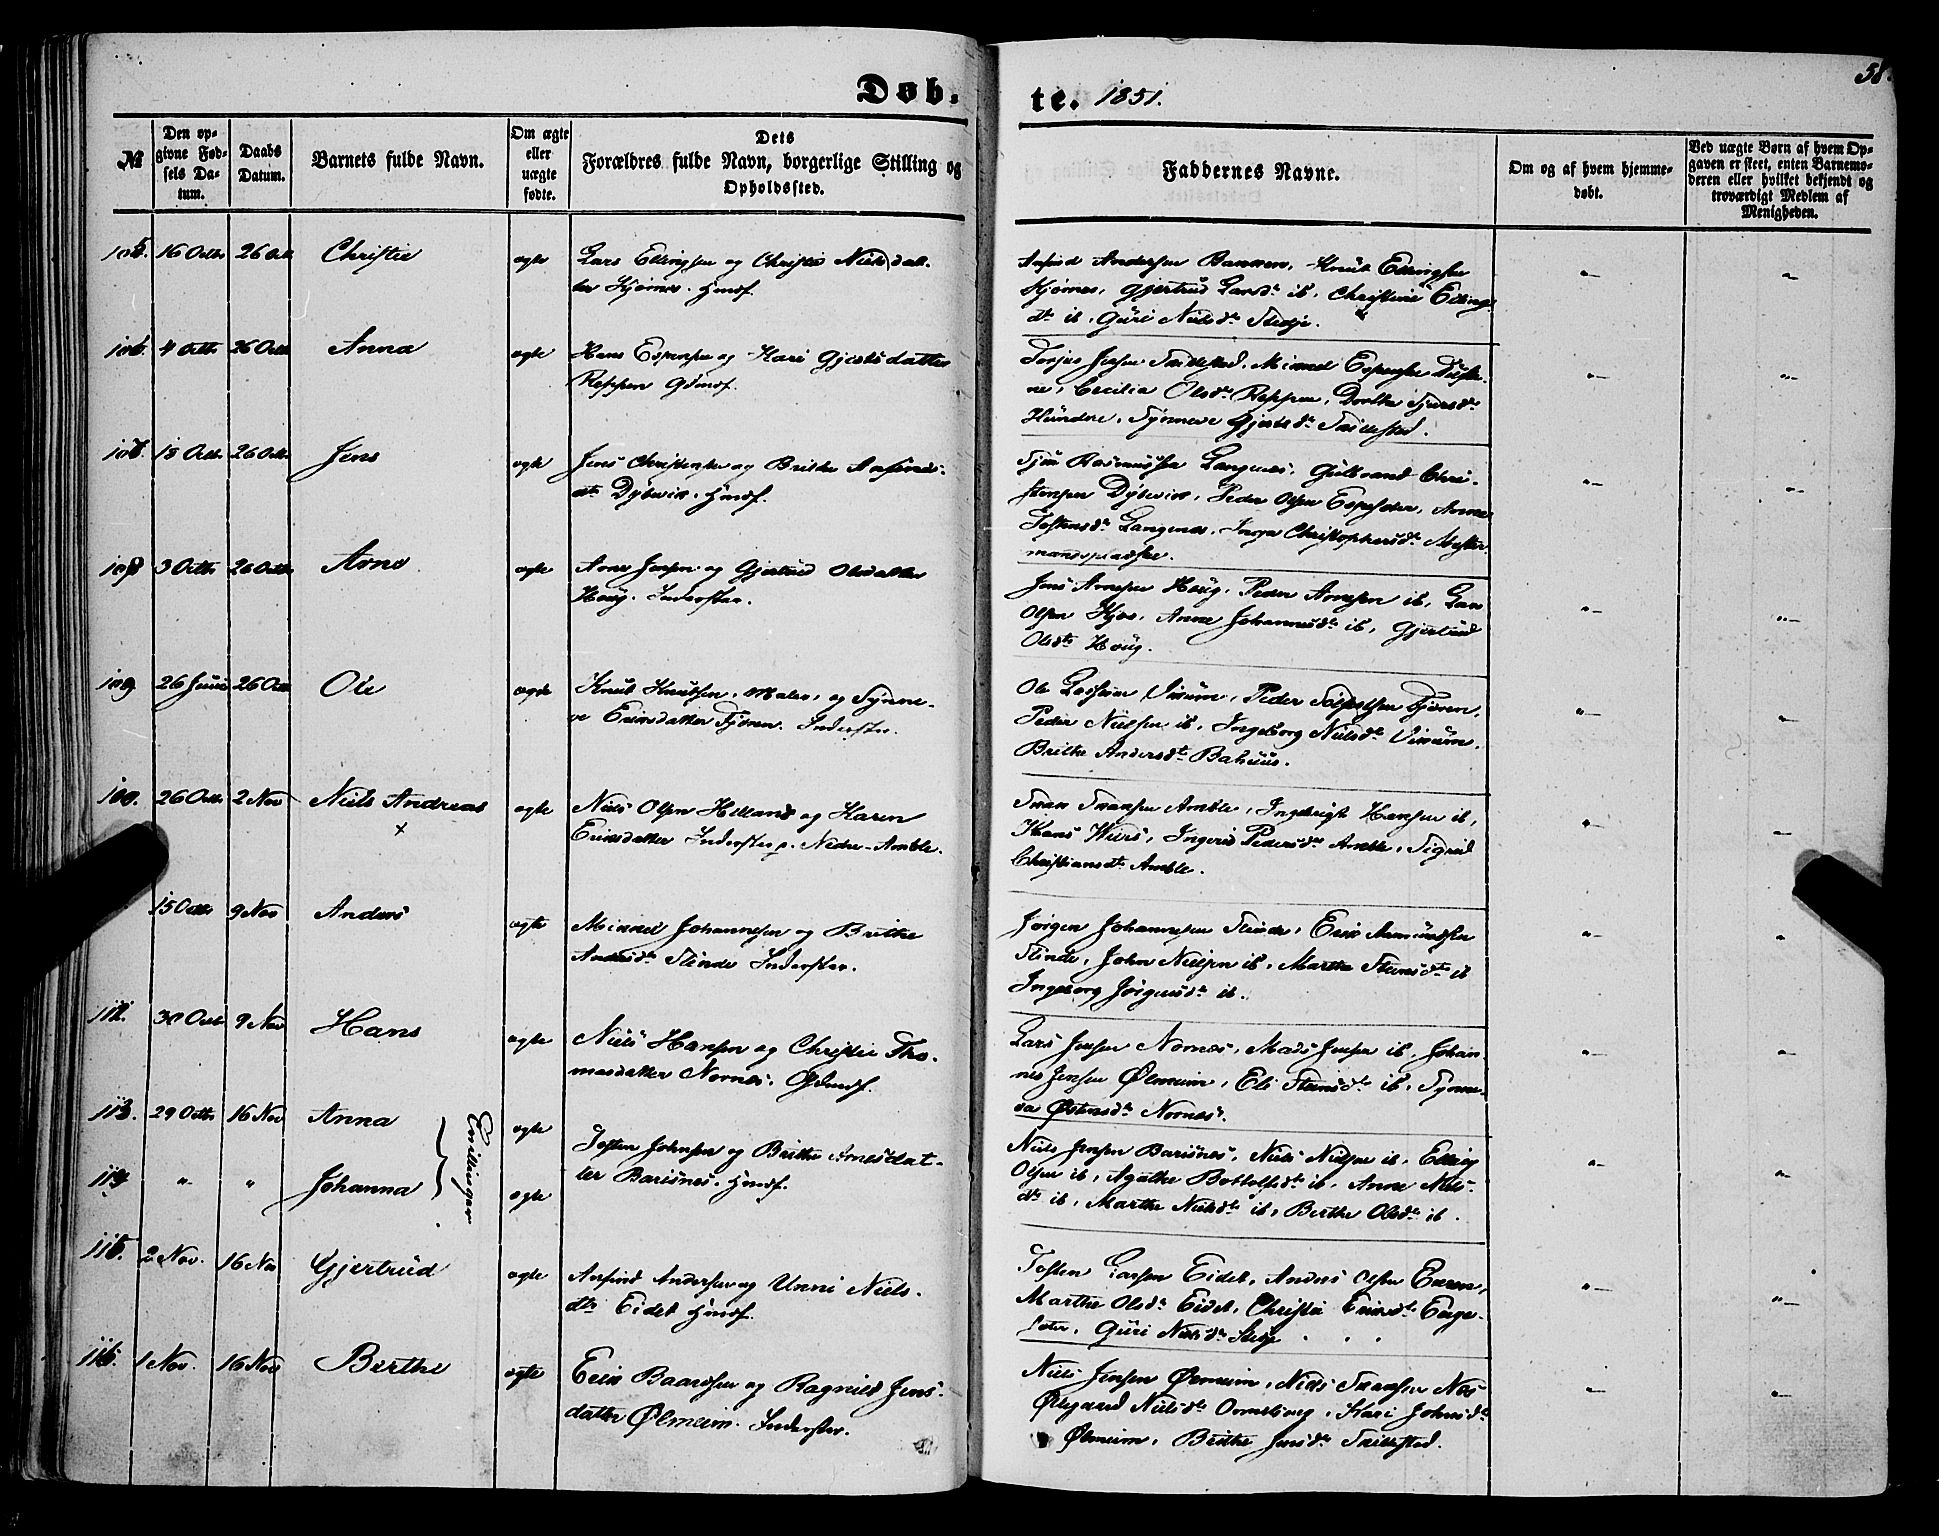 58.
Døb.
te. 1851.
№
Den op-
givne Fød-
sels Da-
tum.
Daabs
Datum.
Barnets fulde Navn.
Om ægte
eller
uægte
fødte.
Dets
Forældres fulde Navn, borgerlige Stilling og
Opholdssted.
Faddernes Navne.
Om og af hvem hjemme-
døbt.
Ved uægte Børn af hvem Op-
gaven er skeet, enten Barnemo-
deren eller hvilket bekjendt og
troværdigt Medlem af
Menigheden.
105. 16 Octbr 26 Oct Christie ægte Lars Ellingsen og Christie Nielsdat-
ter Kjørnes. Hmdf.
Anfind Andersen Bakken, Knut Ellingsen
Kjørnes, Gjertrud Larsdtr ib, Christine Ellings
dtr ib, Guri Nielsdtr Stedje.
106. 4 Octbr 26 Octb Anna ægte Hans Espensen og Kari Gjertsdatter
Reppen Gdmdf.
Torjus Jensen, Espensen
Cecilia Olsdtr Reppen, Dorthe Sjursdtr
Hundere, Synneve Gjertsdtr
107. 18 Octbr 26 Octbr Jens ægte Jens Christensen og Brithe Anfinds-
dtr Dybevik. Hmdf.
Sjur Rasmussen Langenæs, Gulbrand Chri-
stensen Dybevik, Peder Olsen Espeseter, Anna
Jostensdtr Langenæs, Inga Christophersdtr
mandspladsen.
108 3 Octbr 26 Octbr Arne ægte Arne Jensen og Gjertrud Olsdatter
Houg. Inderster.
Jens Arnesen Houg, Peder Arnesen ib, Lars
Olsen Kjos, Anne Johannesdtr ib, Gjertrud
Olsdtr Houg.
109 26 Juni 26 Octb Ole ægte Knut Knutsen, Maler, og Synne-
ve Eriksdatter Fjøren. Inderster.
Ole Larsen Vinum, Peder Fjøren,
Peder Nielsen ib, Ingeborg Nielsdtr Vinum,
Brithe Andersdtr Bahuus.
26 Octbr 2 Nov Niels Andreas ægte Niels Olsen Helland og Karen
x
Eriksdatter Inderster p. Nedre-Amble.
Amble, Hansen ib,
Hans Wiers, Ingerid Pedersdtr Amble, Sigrid
Christiansdtr Amble.
15 Octbr 9 Nov Anders ægte Johannesen og Brithe
Andersdtr Slinde Inderster.
Jørgen Johannesen Slinde, Erik Amundsen
Slinde, John Nielsen ib, Martha Steensdtr ib
Ingeborg Jørgensdtr ib.
112. 30 Octbr 9 Nov Hans ægte Niels Hansen og Christie Tho-
masdatter Nornes. Gdmdf.
Lars Jensen Nornes, Mads Jensen ib, Johan-
nes Jensen Ølmeim, Eli Steensdtr ib, Synne-
va Østensdtr Nornes.
113. 29 Octbr 16 Nov Anna ægte
Enillinger
Josten Johnsen og Brithe Arnesdat-
ter Barsnes. Hmdf.
Niels Jensen Barsnes, Niels Nielsen ib, Elling
Olsen ib, Agathe Botolfsdtr ib, Anne Niels-
dtr ib, Marthe Nielsdtr ib, Berthe Olsdtr ib.
114 " " Johanna ægte
115. 2 Nov. 16 Nov Gjertrud ægte Anfind Andersen og Unni Niels-
dtr Eidet Hmdf.
Josten Larsen Eidet, Anders Olsen
Marthe Olsdtr Eidet, Christie Eriksdtr Enge-
seter, Guri Nielsdtr Stedje
116. 1 Nov. 16 Nov Berthe ægte Erik Baardsen og Ragnild Jens-
datter Ølmeim. Inderster.
Niels Jensen Ølmeim, Niels
Ølegaard Nielsdtr Ormebjerg, Kari Johnsdtr
Ølmeim, Brithe Jensdtr